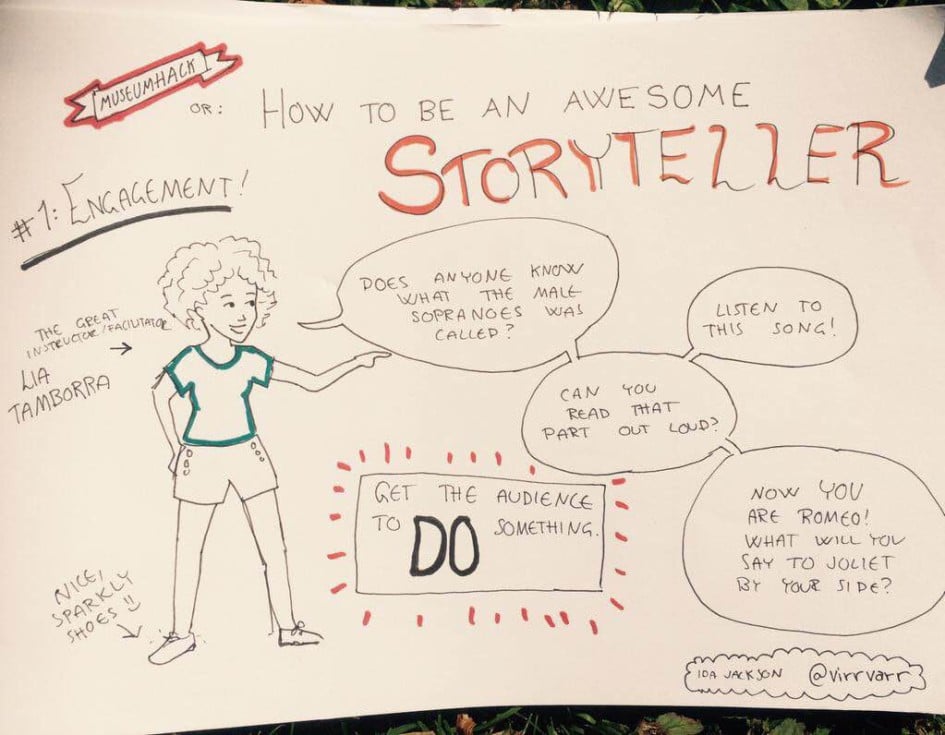 MUSEUMHACK
OR: HOW TO BE AN AWESOME
STORYTELLER
#1: ENGAGEMENT!
THE GREAT
INSTRUCTOR/FACILITATOR
LIA
TAMBORRA
DOES ANYONE KNOW
WHAT THE MALE
SOPRANOES WAS
CALLED?
LISTEN TO
THIS SONG!
CAN YOU
READ THAT
PART OUT LOUD?
NOW YOU
ARE ROMEO!
WHAT WILL YOU
SAY TO JOLIET
BY YOUR SIDE?
GET THE AUDIENCE
TO DO SOMETHING.
NICE,
SPARKLY
SHOES
IDA JACKSON @virrvarr